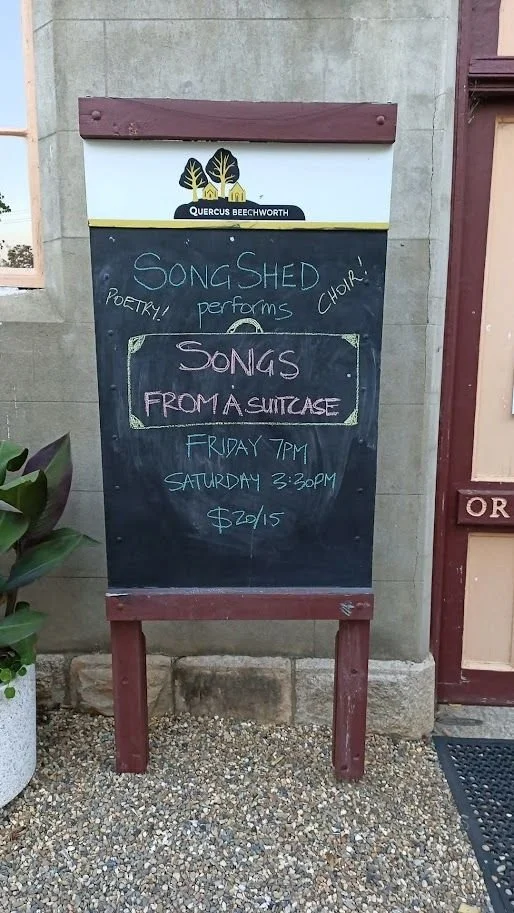 QUERCUS BEECHWORTH
SONGSHED
POETRY!
performs
CHOIR!
SONGS
FROM A SUITCASE
FRIDAY 7PM
SATURDAY 3:30PM
$20/15
OR